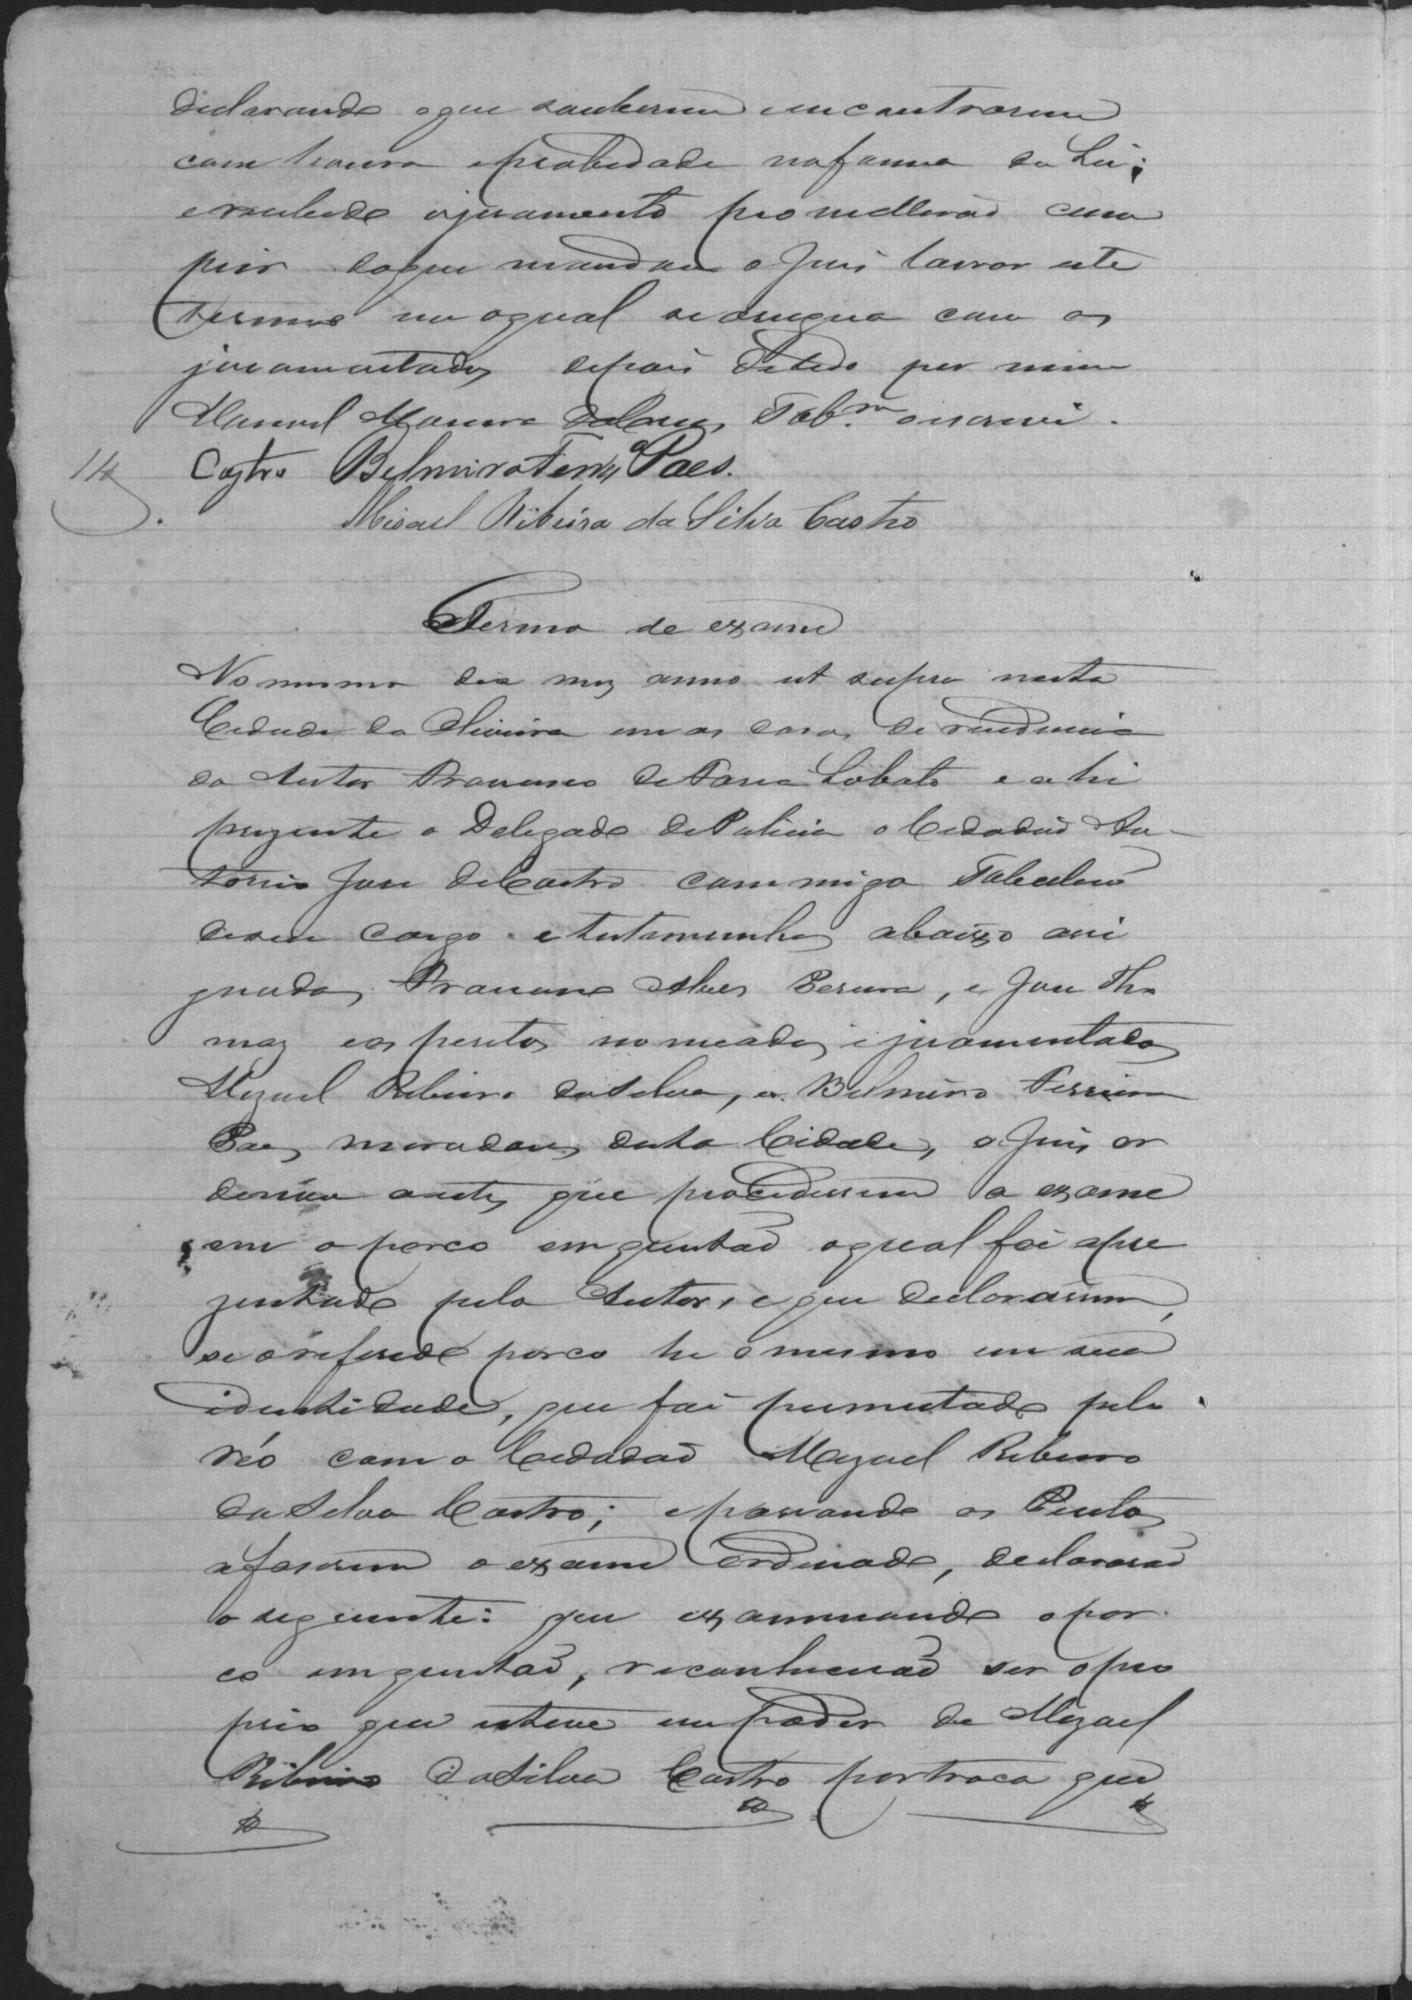 declarando oque souberem encontrarem
com honra eprobidade naforma da Lei;
erecebido ojuramento prometterão cum
prir doque mandou o Juis lavrar este
termo em oqual seassigna com os
juramentados depois delido por mim
Manoel Moreira daCruz, Tab.m oescrevi.
14 Castro Belmiro Ferrª Paes.
Misael Ribeiro da Silva Castro
Termo de exame
No mesmo dia mez anno ut supra nesta
Cidade da Oliveira em as casas de residencia
do Autor Francisco deFaria Lobato e ahi
prezente o Delegado dePolicia o Cidadão An-
tonio Jose deCastro commigo Tabelião
deseu cargo e testemunhas abaixo assi
gnadas Francisco Alves Pereira, e Jose Tho
maz eos peritos nomeados e juramentados
Mizael Ribeiro daSilva, e Belmiro Ferreira
Paes moradores desta Cidade, o Juis or
denou aestes que procedessem a exame
em oporco emquestão oqual foi apre
zentado pelo Autor, e que declarassem,
se oreferido porco he omesmo em sua
identidade, que foi permutado pelo
réo com o Cidadão Mizael Ribeiro
daSilva Castro; epassando os Peritos
afaserem o exame ordenado, declararão
o seguinte: que examinando opor
co emquestão, reconhecerão ser opro
prio que esteve empoder de Mizael
Ribeiro daSilva Castro portroca que